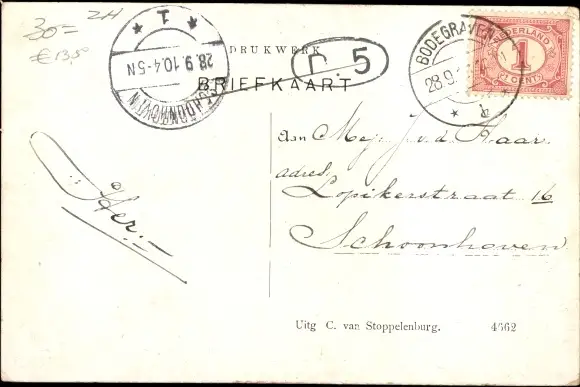 30=
2H
€ 13,50
1
28.9.10.4-5N
SCHOONHOVEN
BODEGRAVEN
28.9.
NEDERLAND
1
1 CENT
DRUKWERK
5
BRIEFKAART
Aan Mej. J. v. d. Haar
adres
Lopikerstraat 16
Schoonhoven
Uitg C. van Stoppelenburg. 4662